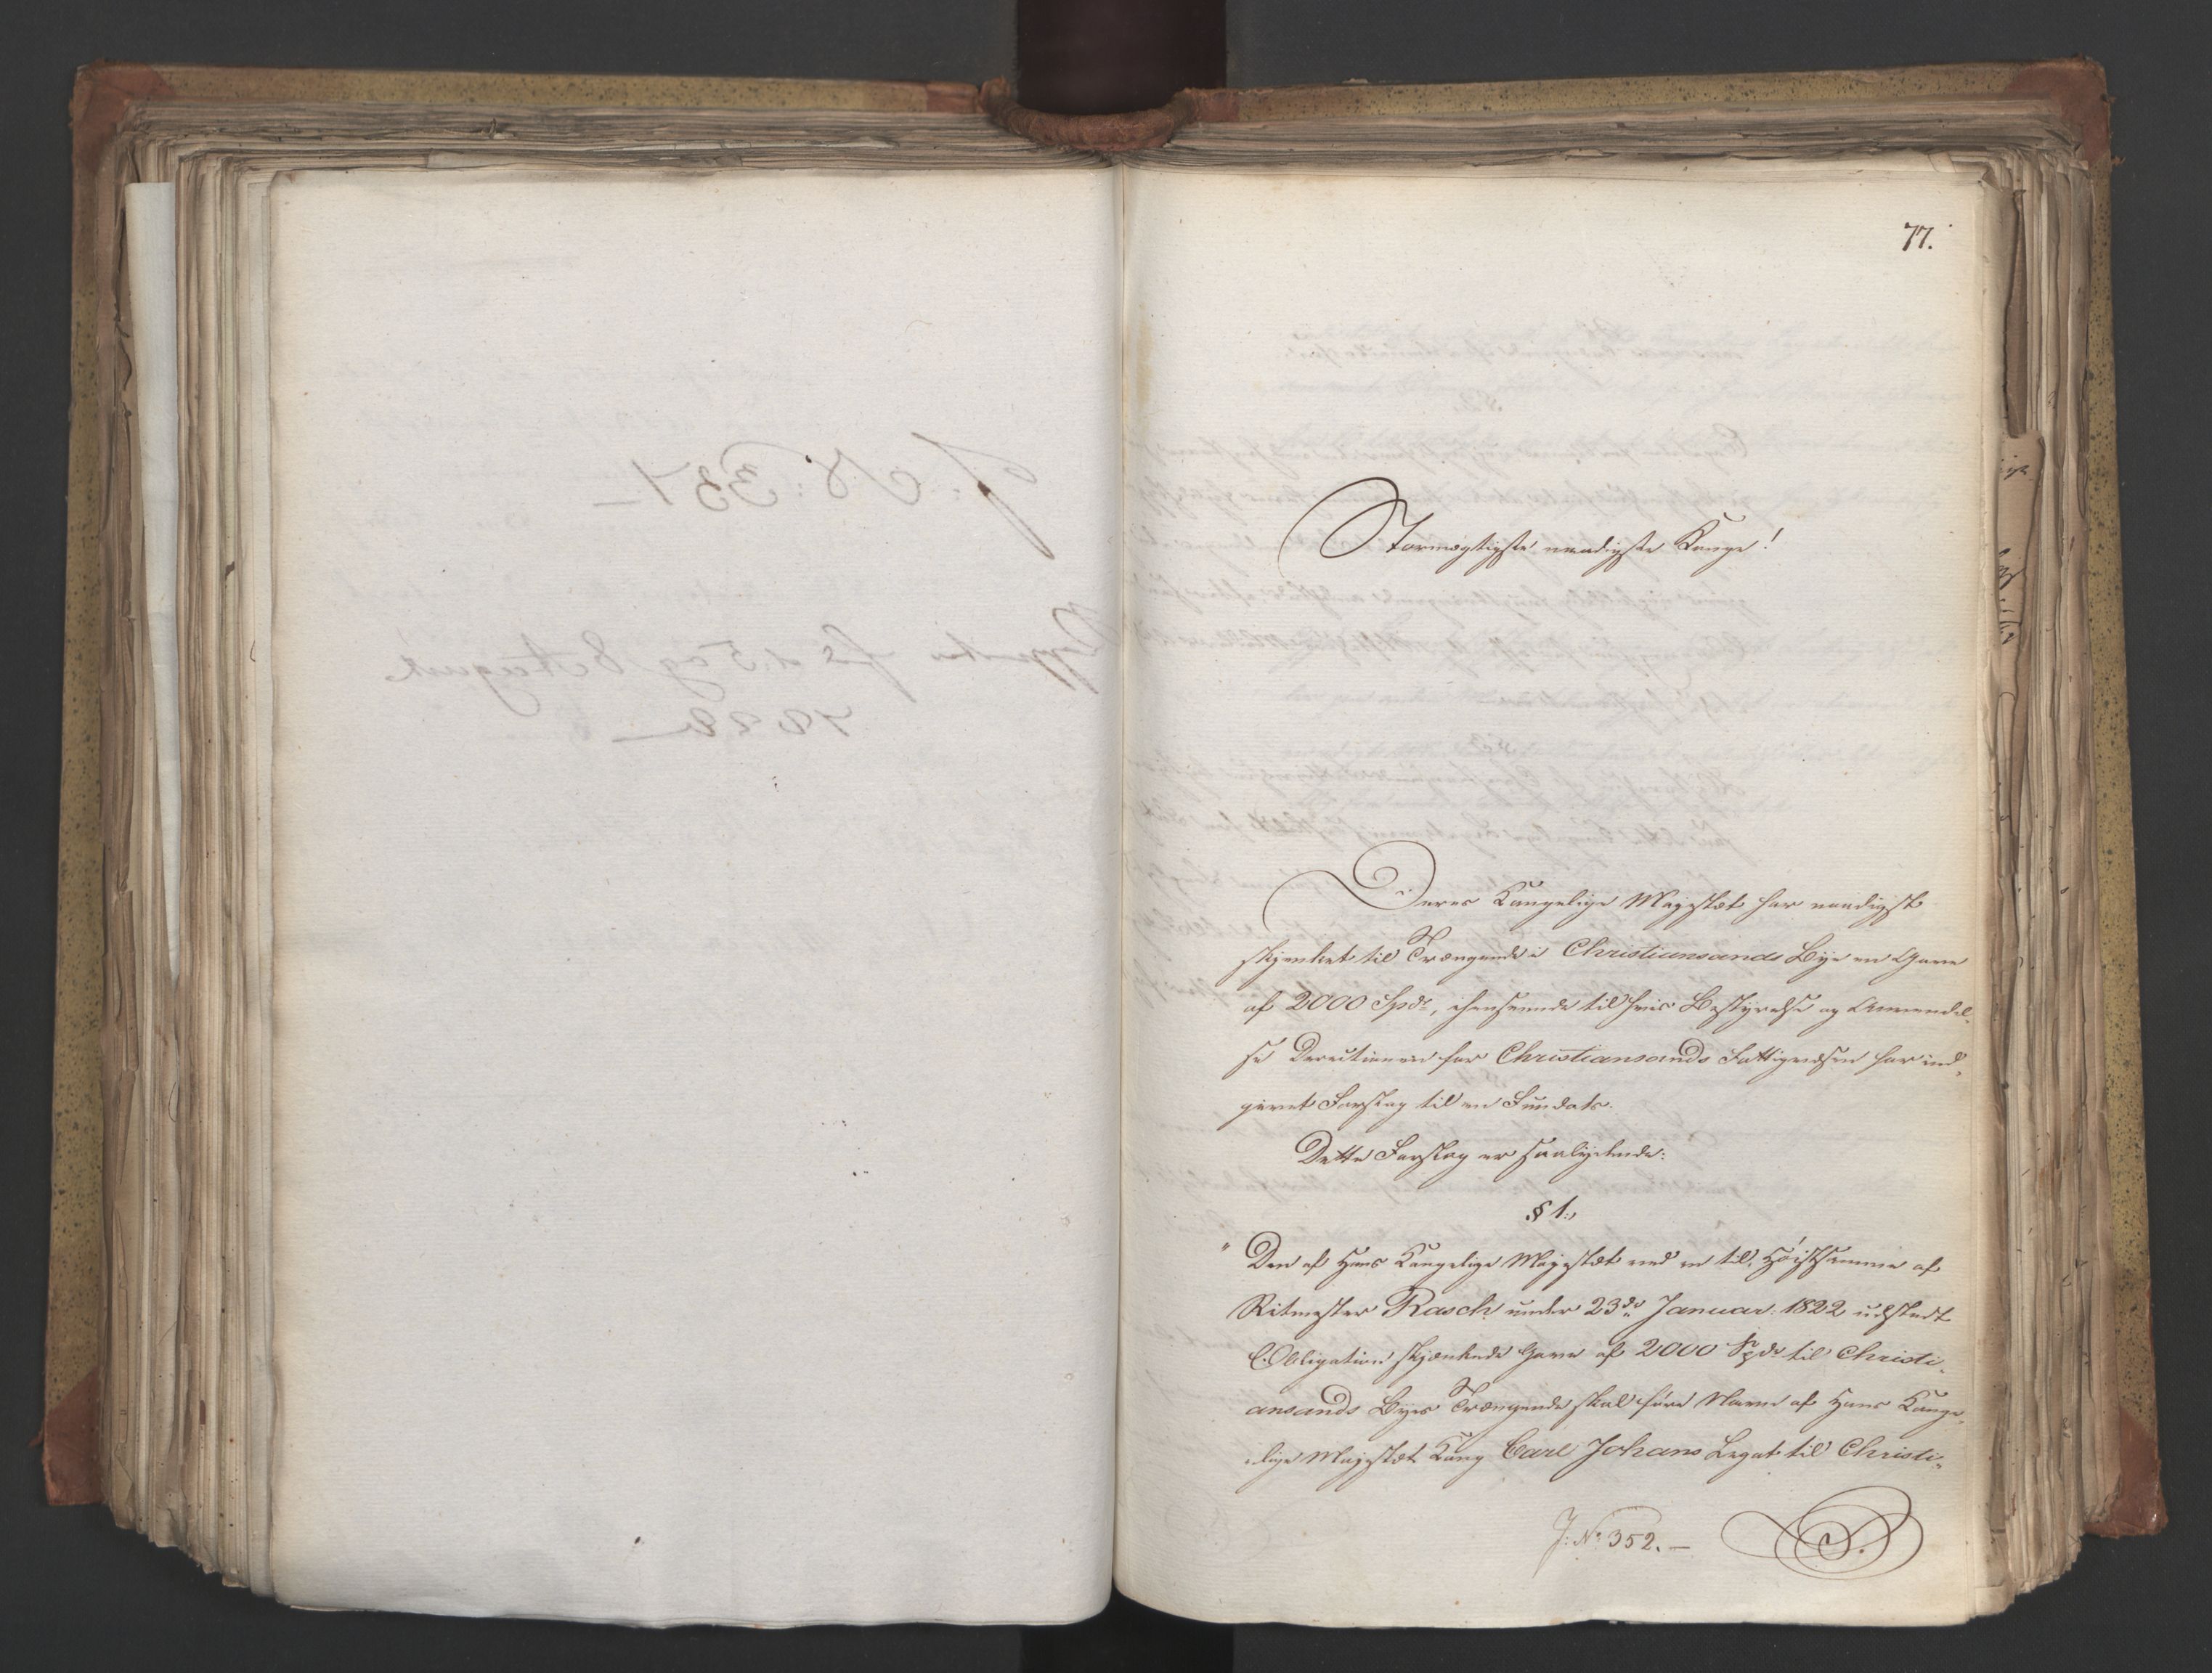 77.
Stormægtigste naadigste Konge!
Deres Kongelige Majestæt har naadigst
skjenket til Trængende i Christiansands Bye en Gave
af 2000 Spd, ihenseende til hvis Bestyrelse og Anvendel-
se Directionen for Christiansands Fattigvæsen har ind-
givet Forslag til en Fundats.
Dette Forslag er saalydende:
§ 1.
" Den af Hans Kongelige Majestæt ved en til Høistsamme af
Ritmester Rasch under 23de Januar 1822 udstedt
Obligation skjænkede Gave af 2000 Spd til Christi-
ansands Byes Trængende skal føre Navn af Hans Konge-
lige Majestæt Kong Carl Johans Legat til Christi-
J: No 352.